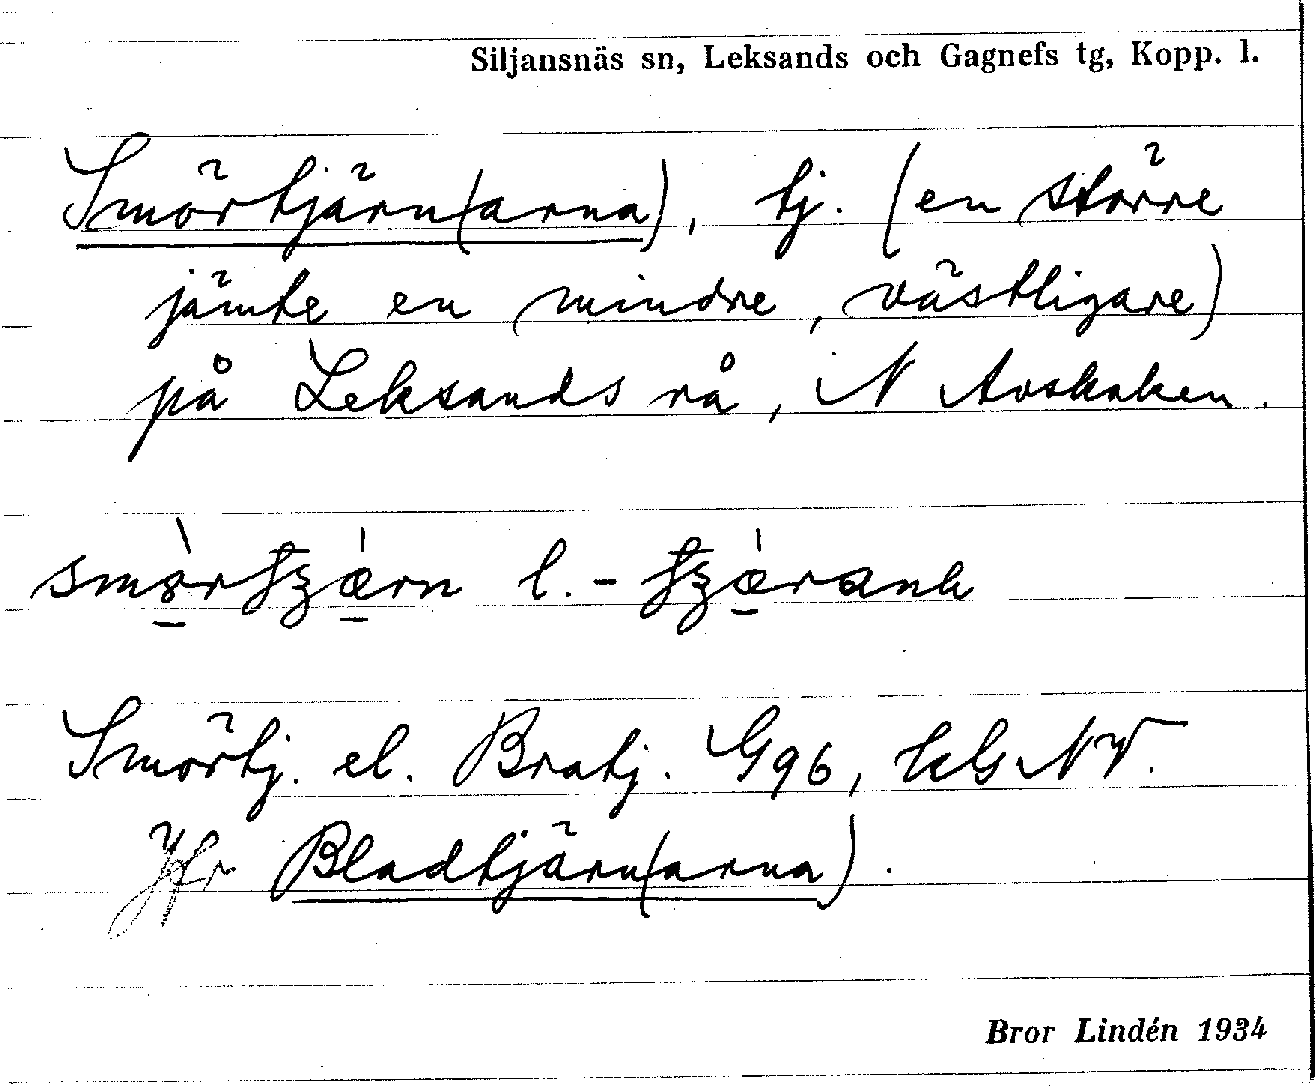 Siljansnäs sn, Leksands och Gagnefs tg, Kopp. l.
Smörtjärn(arna), tj. (en större
jämte en mindre, västligare)
på Leksands rå, N Avskaken.
l. -
Smörtj. el. Bratj. G96, NV.
Jfr Bladtjärn(arna).
Bror Lindén 1934